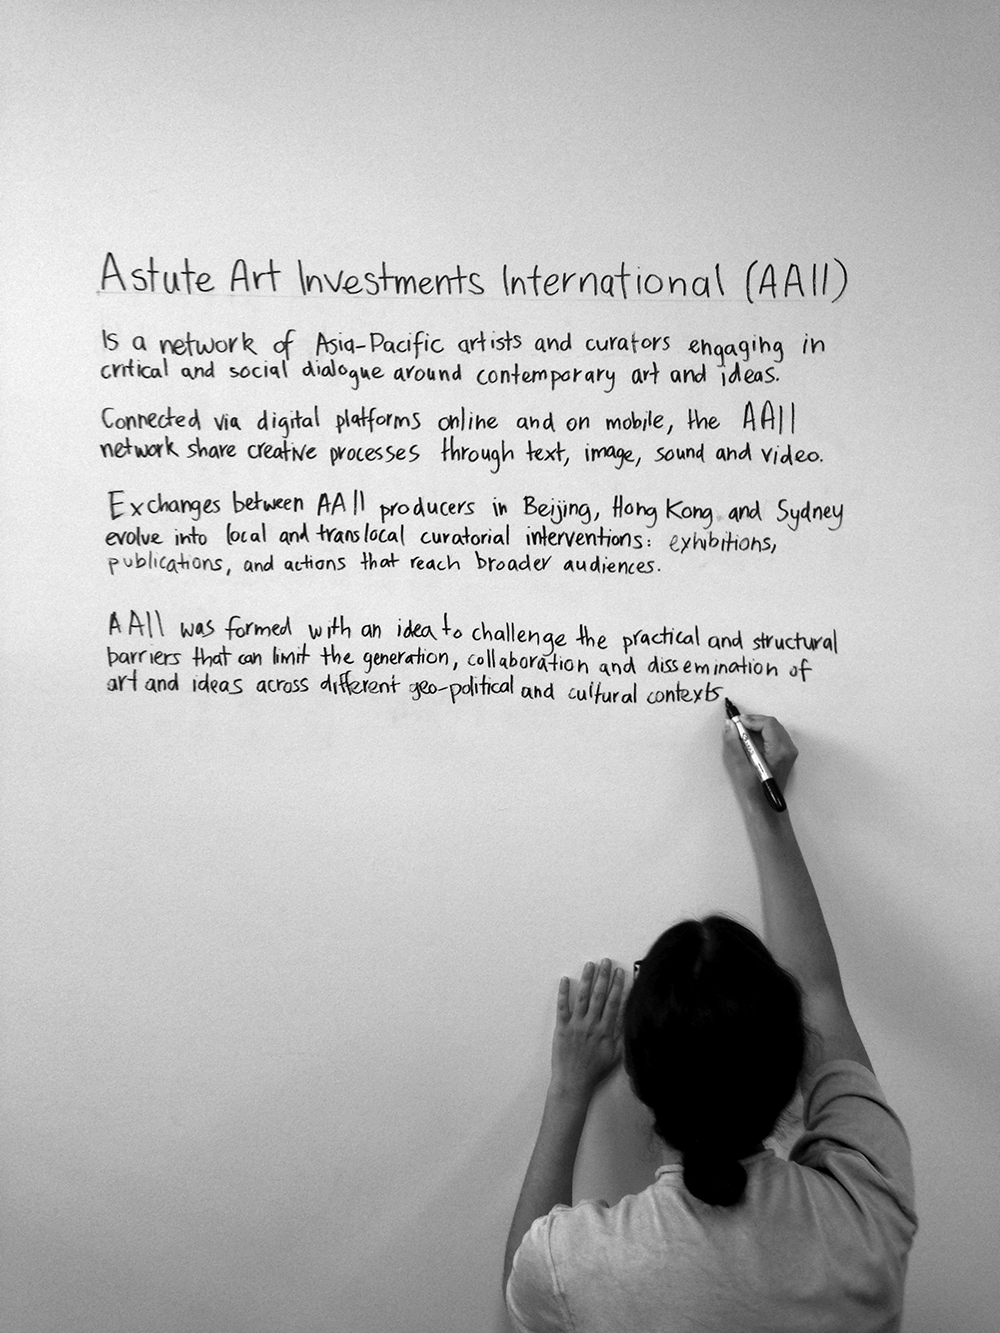 Astute Art Investments International (AAII)
Is a network of Asia-Pacific artists and curators engaging in
critical and social dialogue around contemporary art and ideas.
Connected via digital platforms online and on mobile, the AAII
network share creative processes through text, image, sound and video.
Exchanges between AAII producers in Beijing, Hong Kong and Sydney
evolve into local and translocal curatorial interventions: exhibitions,
publications, and actions that reach broader audiences.
AAII was formed with an idea to challenge the practical and structural
barriers that can limit the generation, collaboration and dissemination of
art and ideas across different geo-political and cultural contexts